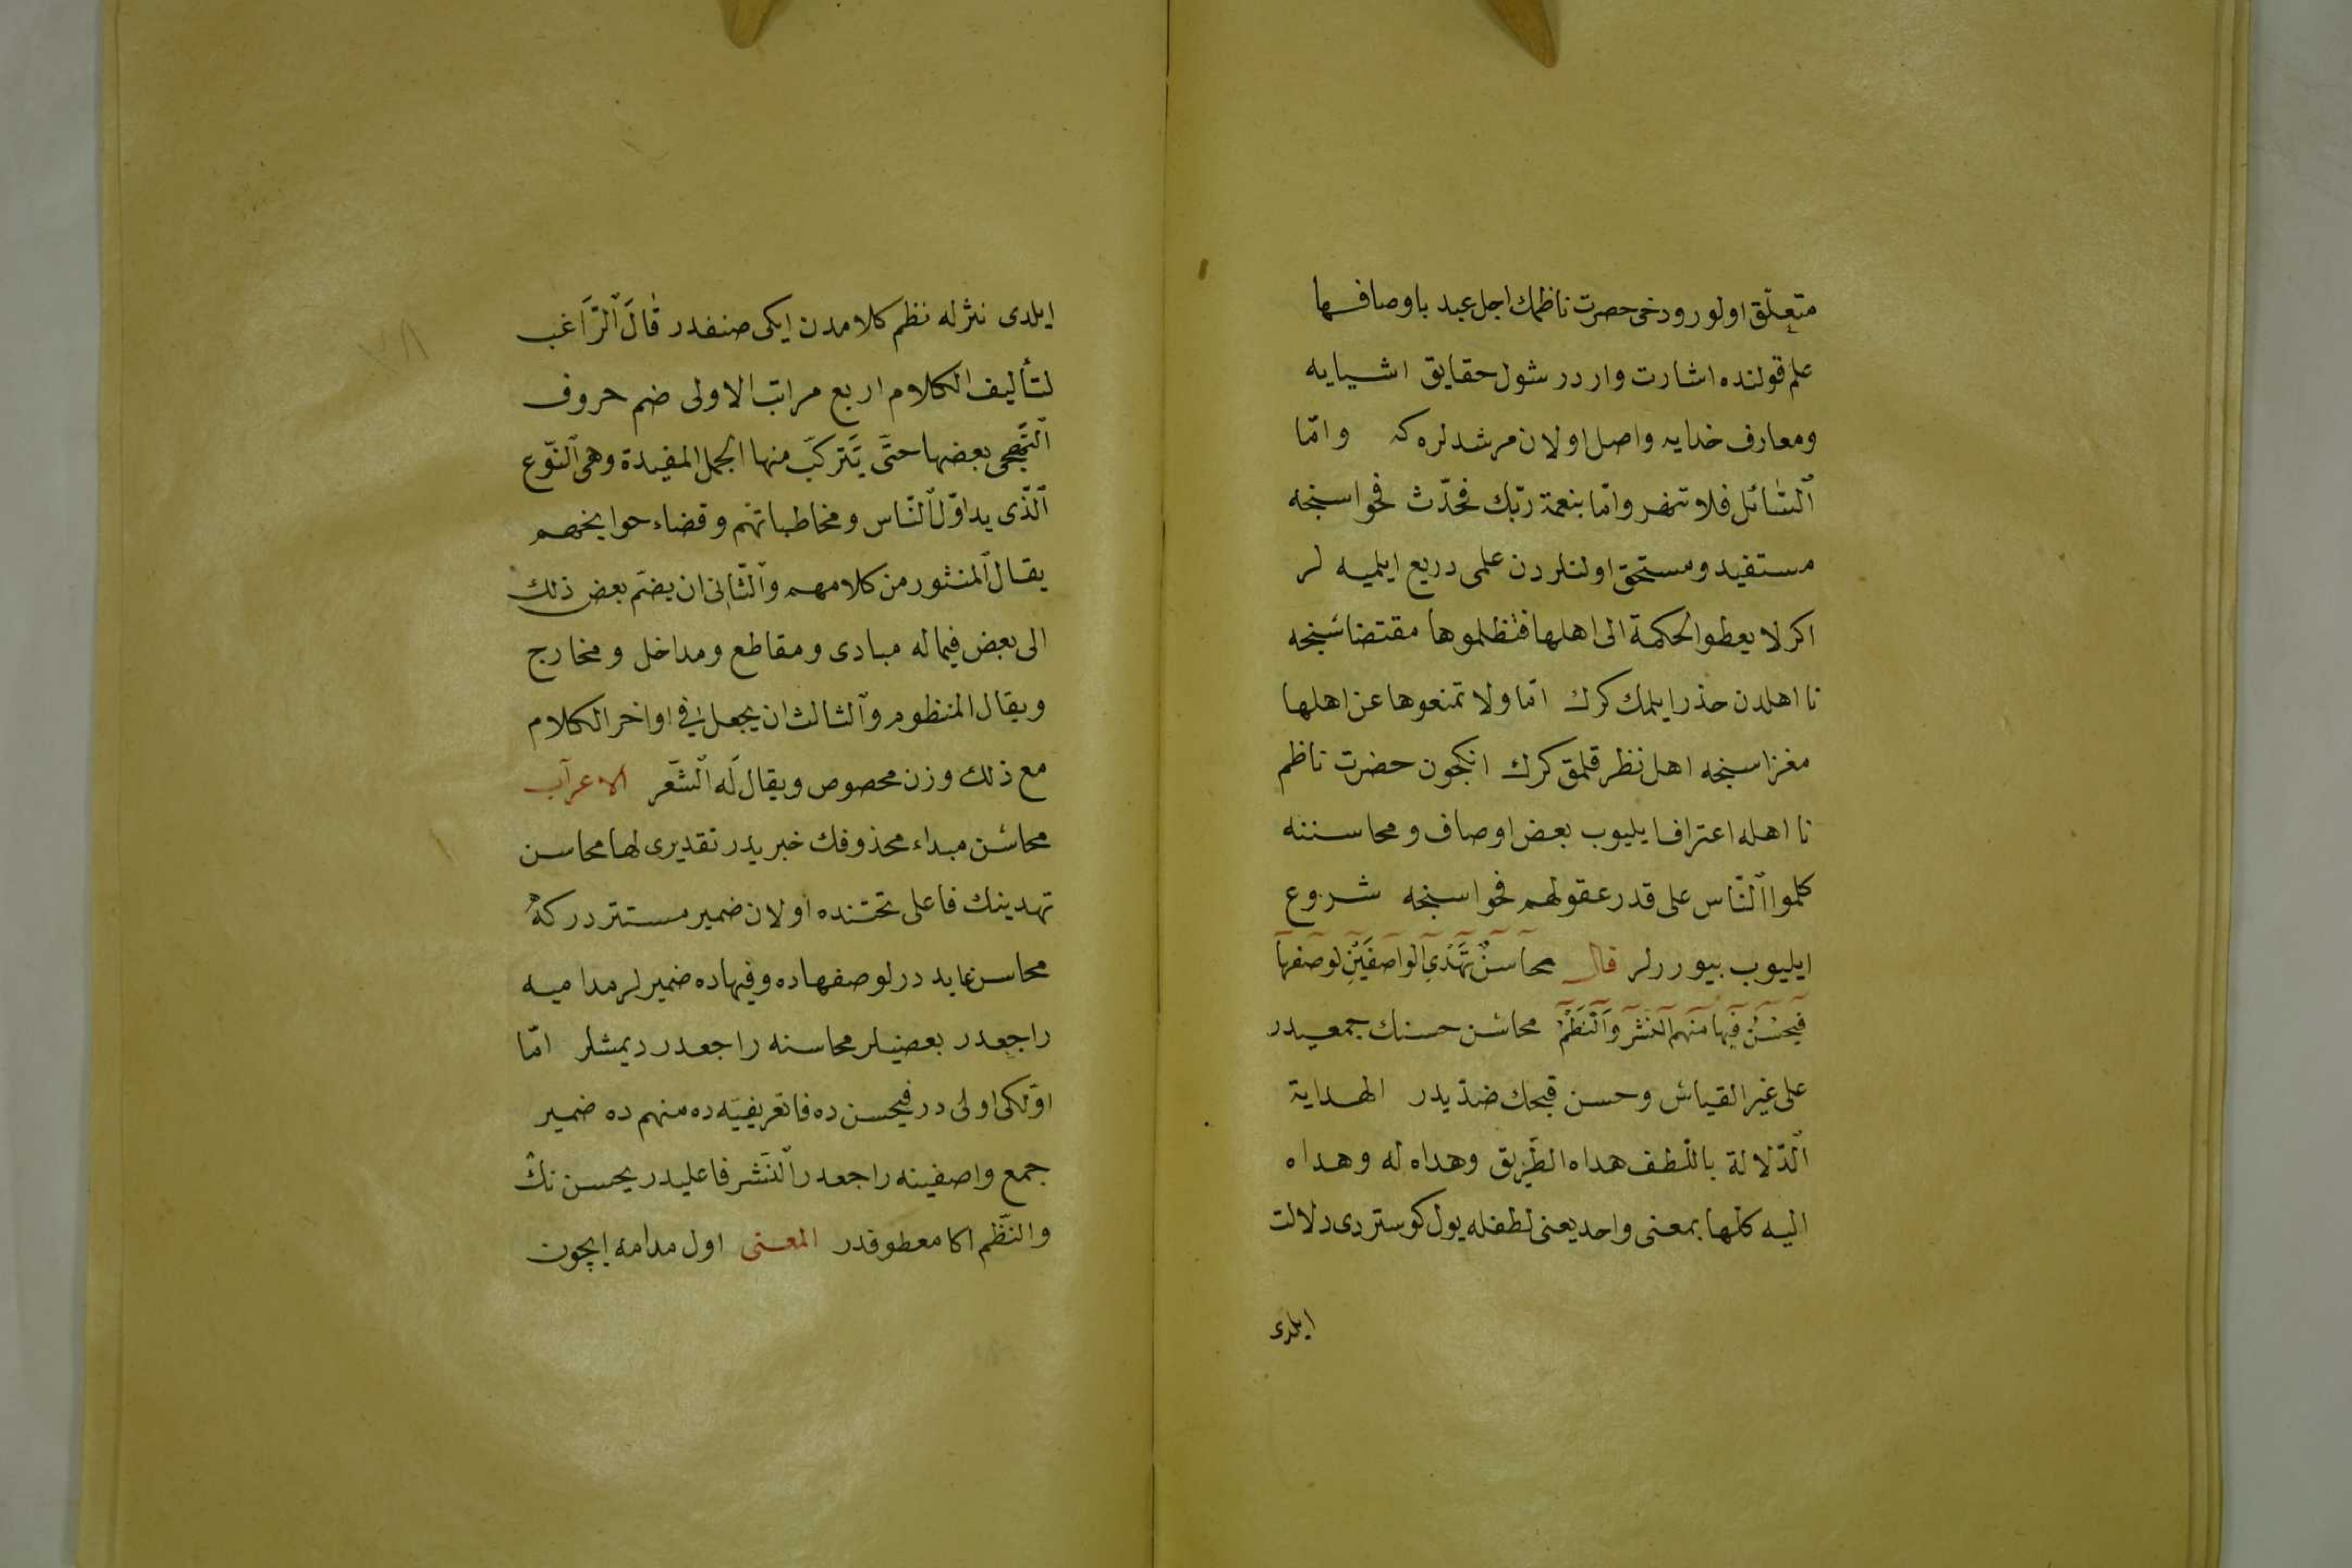 متعلّق اولور ودخی حصرت ناظمك اجل عبد باوصافها
علم قولنده اشارت واردر شول حقایق اشیایه
ومعارف خدایه واصل اولان مرشدلره که وامّا
ٱلسّٰائل فلا تنهر وامّا بنعمة ربّك فحدّث فحواسنجه
مستفید ومستحق اولنلردن علمی دریع ایلمیه لر
اکر لا یعطوا لحکمة الی اهلها فتظلموها مقتضا سنجه
نا اهلدن حذر ایلمك کرك امّا ولا تمنعوها عن اهلها
مغزاسنجه اهل نظر قلمق کرك انکچون حضرت ناظم
نا اهله اعترافا یلیوب بعض اوصاف ومحاسننه
کلموا ٱلنّاس علی قدر عقولهم فحواسنجه شروع
ایلیوب بیوررلر قال محاسنٌ تَهْدِي الواصفَيْنِ لوصفها
فيحسُنُ فيها منهم النثر وَٱلْنَظْمُ محاسن حسنك جمعیدر
علی غیر القیاس وحسن قبحك ضدّیدر الهدایة
ٱلدّلالة باللّطف هداه الطّریق وهداه له وهداه
الیه کلّها بمعنی واحد یعنی لطفله یول کوستردی دلالت
ایلدی
ایلدی نثرله نظم کلامدن ایکی صنفدر قٰالَ ٱلرَّاغب
لتألیف الکلام اربع مراتب الاولی ضم حروف
ٱلتّهجی بعضها حتَّی یَترکّب منها الجمل المفیدة وهی ٱلنّوع
ٱلّذی یداوّل ٱلنّاس ومخاطباتهم وقضاء حوایجهم
یقال ٱلمنثور من کلامهم وٱلثّانی ان یضمّ بعض ذلك
الی بعض فیما له مبادی ومقاطع ومداخل ومخارج
ویقال المنظوم وٱلثالث ان یجعل فی اواخر الکلام
مع ذلك وزن محصوص ویقال لَه ٱلشّعر الاعراب
محاسن مبداء محذوفك خبریدر تقدیری لها محاسن
تهدینك فاعلی تحتنده اولان ضمیر مستتردر که
محاسن عایددر لوصفهاده وفیهاده ضمیرلر مدامیه
راجعدر بعضیلر محاسنه راجعدر دیمشلر امّا
اوّلکی اولی در فیحسن ده فا تعریفیّه ده منهم ده ضمیر
جمع واصفینه راجعدر ٱلنّثر فاعلیدر یحسن نك
والنّظم اکا معطوفدر المعنی اول مدامه ایچون